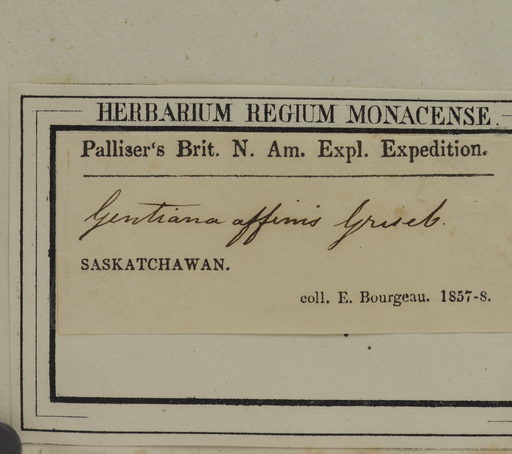 HERBARIUM REGIUM MONACENSE.
Palliser's Brit. N. Am. Expl. Expedition.
Gentiana affinis Griseb.
SASKATCHAWAN.
coll. E. Bourgeau. 1857-8.